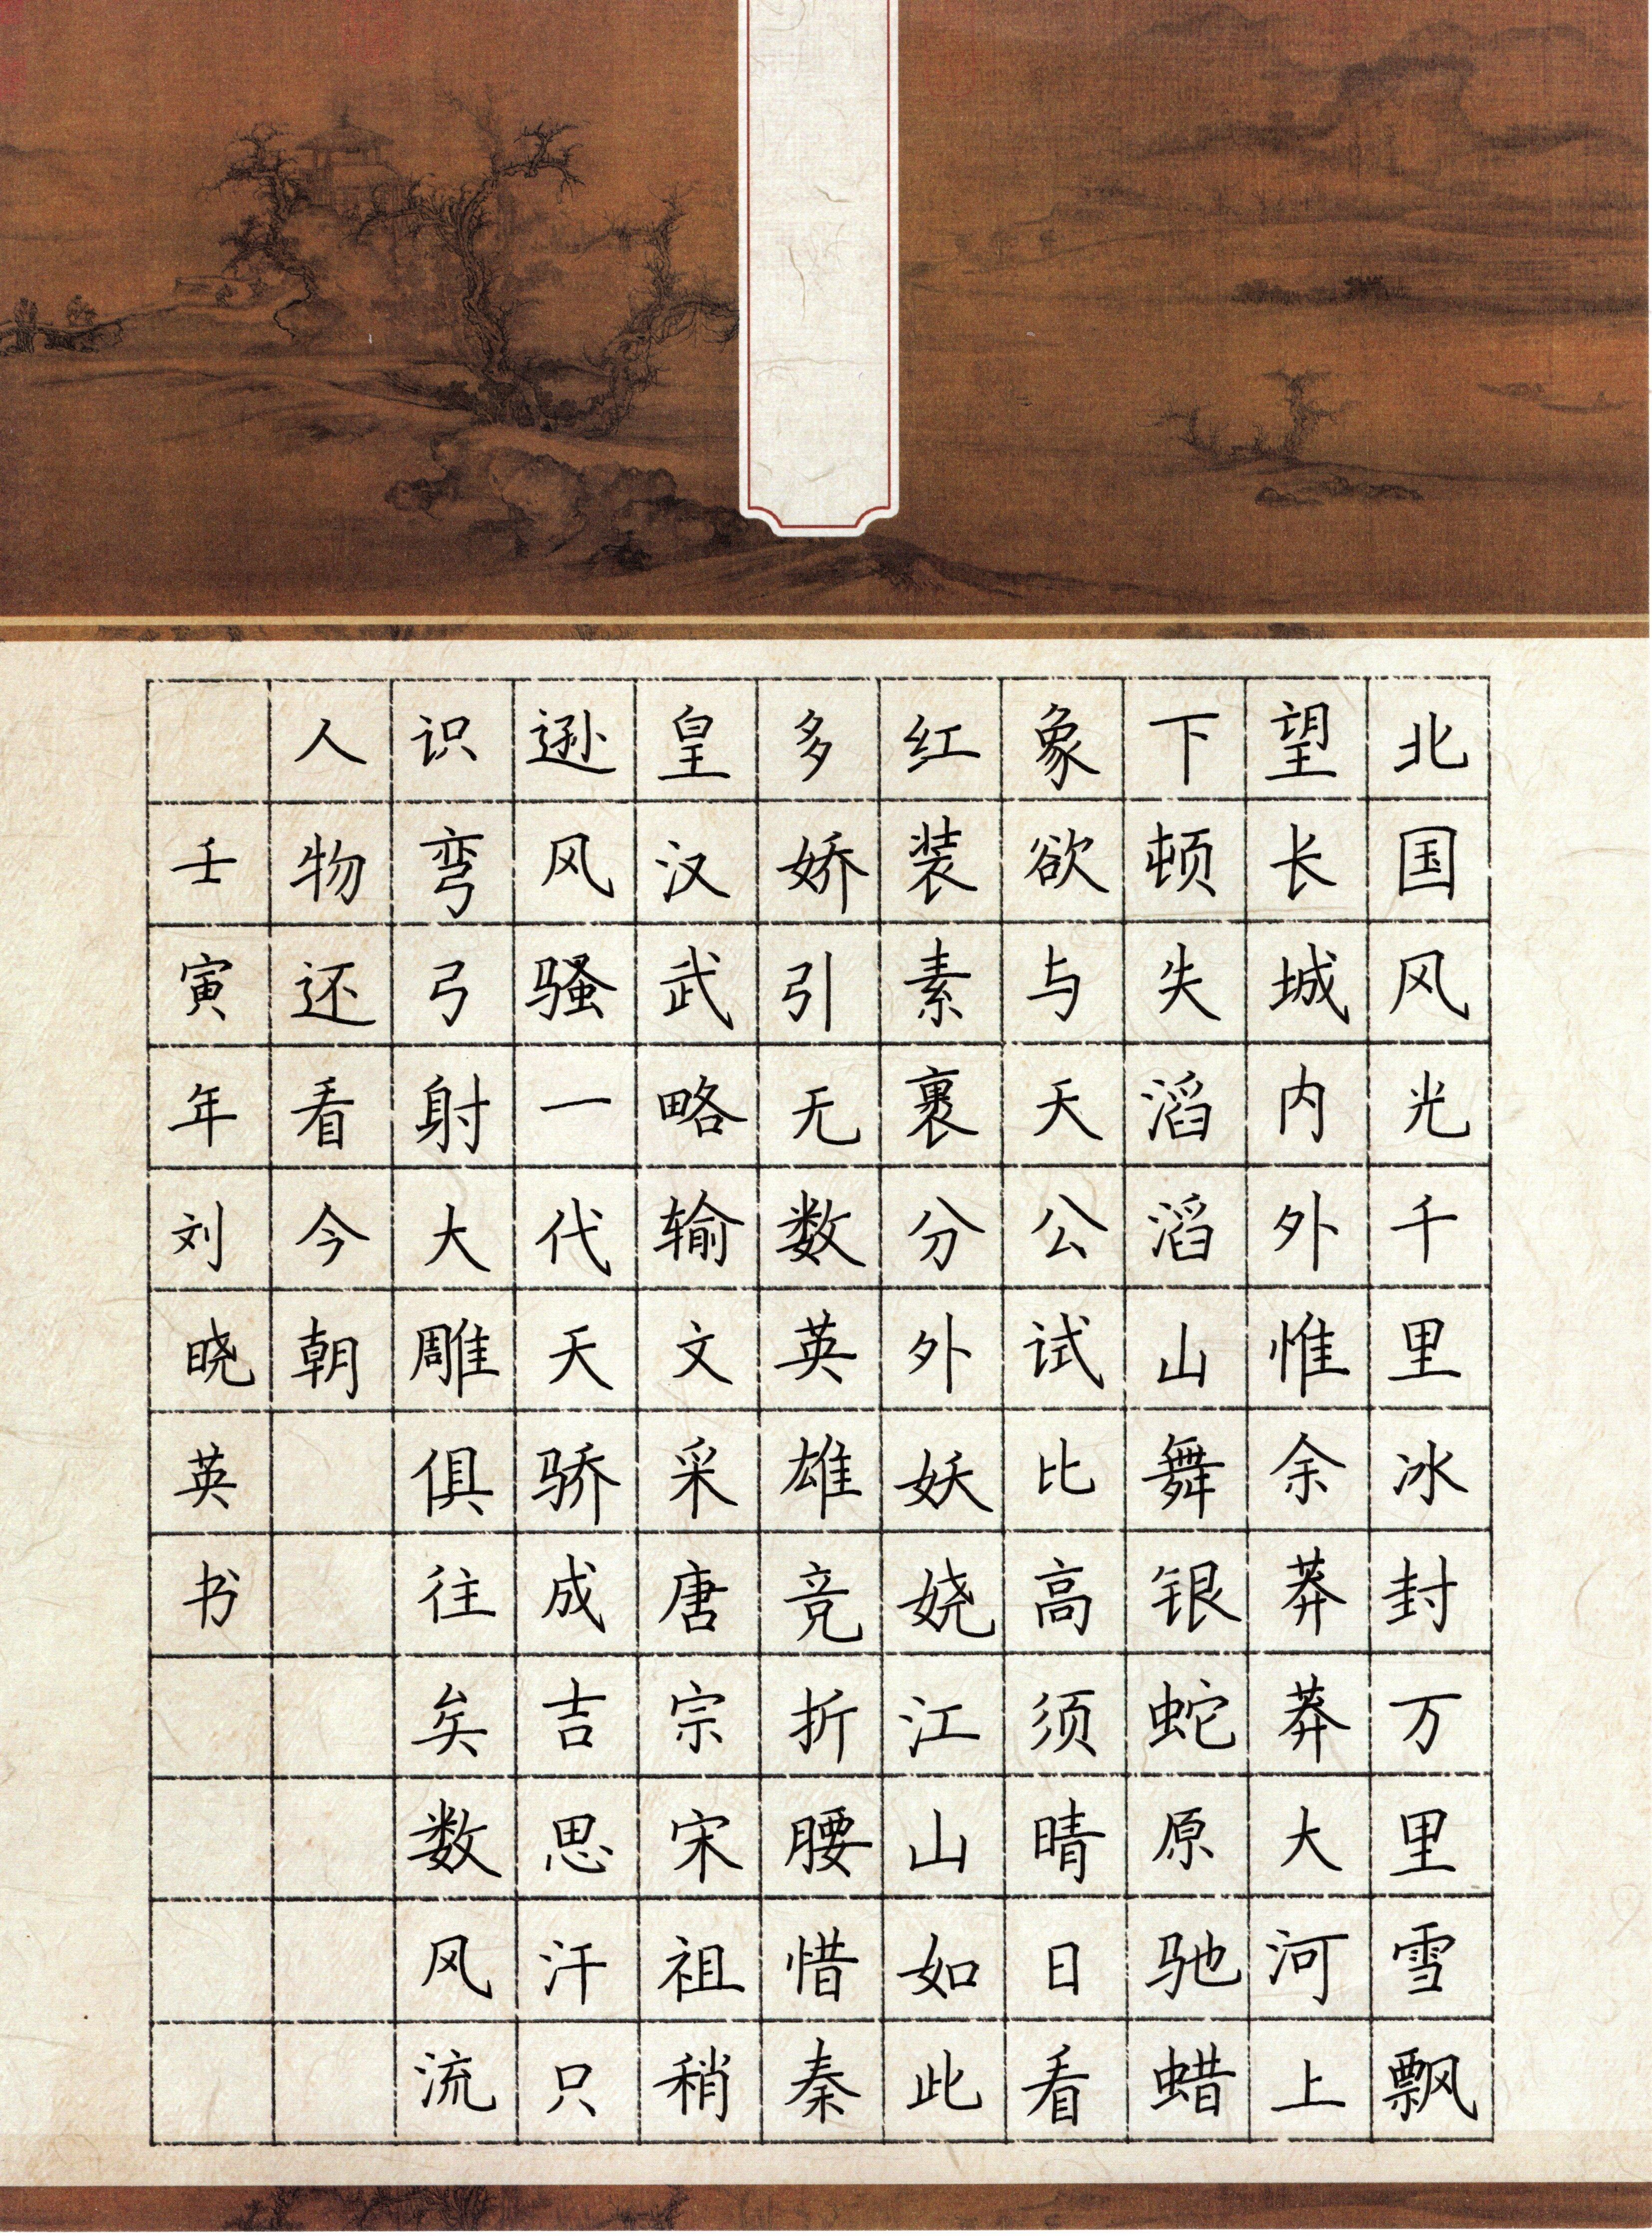 北国风光千里冰封万里雪飘
望长城内外惟余莽莽大河上
下顿失滔滔山舞银蛇原驰蜡
象欲与天公试比高须晴日看
红装素裹分外妖娆江山如此
多娇引无数英雄竞折腰惜秦
皇汉武略输文采唐宗宋祖稍
逊风骚一代天骄成吉思汗只
识弯弓射大雕俱往矣数风流
人物还看今朝
壬寅年刘晓英书